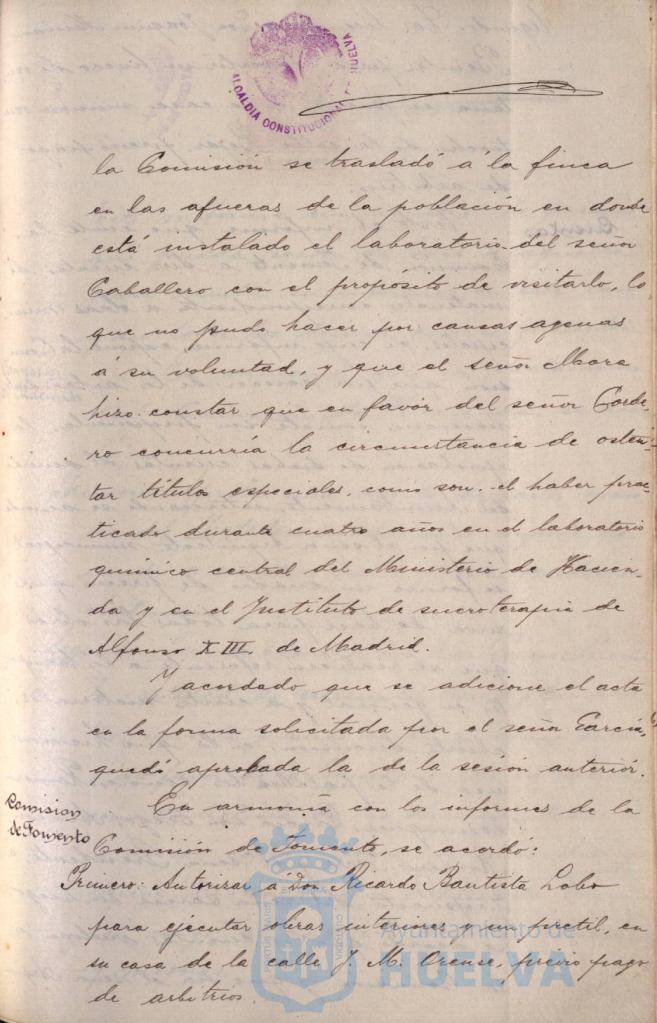 ALCALDIA CONSTITUCIONAL HUELVA
la Comisión se trasladó á la finca
en las afueras de la población en donde
está instalado el laboratorio del señor
Caballero con el propósito de visitarlo, lo
que no pudo hacer por causas agenas
á su voluntad, y que el señor Mora
hizo constar que en favor del señor Corde-
ro concurría la circunstancia de osten-
tar títulos especiales, como son el haber prac-
ticado durante cuatro años en el laboratorio
químico central del Ministerio de Hacien-
da y en el Instituto de sueroterapia de
Alfonso XIII de Madrid.
Y acordado que se adicione el acta
en la forma solicitada por el señor García,
quedó aprobada la de la sesión anterior.
Comision
de Fomento
En armonía con los informes de la
Comisión de Fomento, se acordó:
Primero: Autorizar á Don Ricardo Bautista Lobo
para ejecutar obras interiores y un pretil, en
su casa de la calle J. M. Orense, previo pago
de arbitrios.
Ayuntamiento de
HUELVA